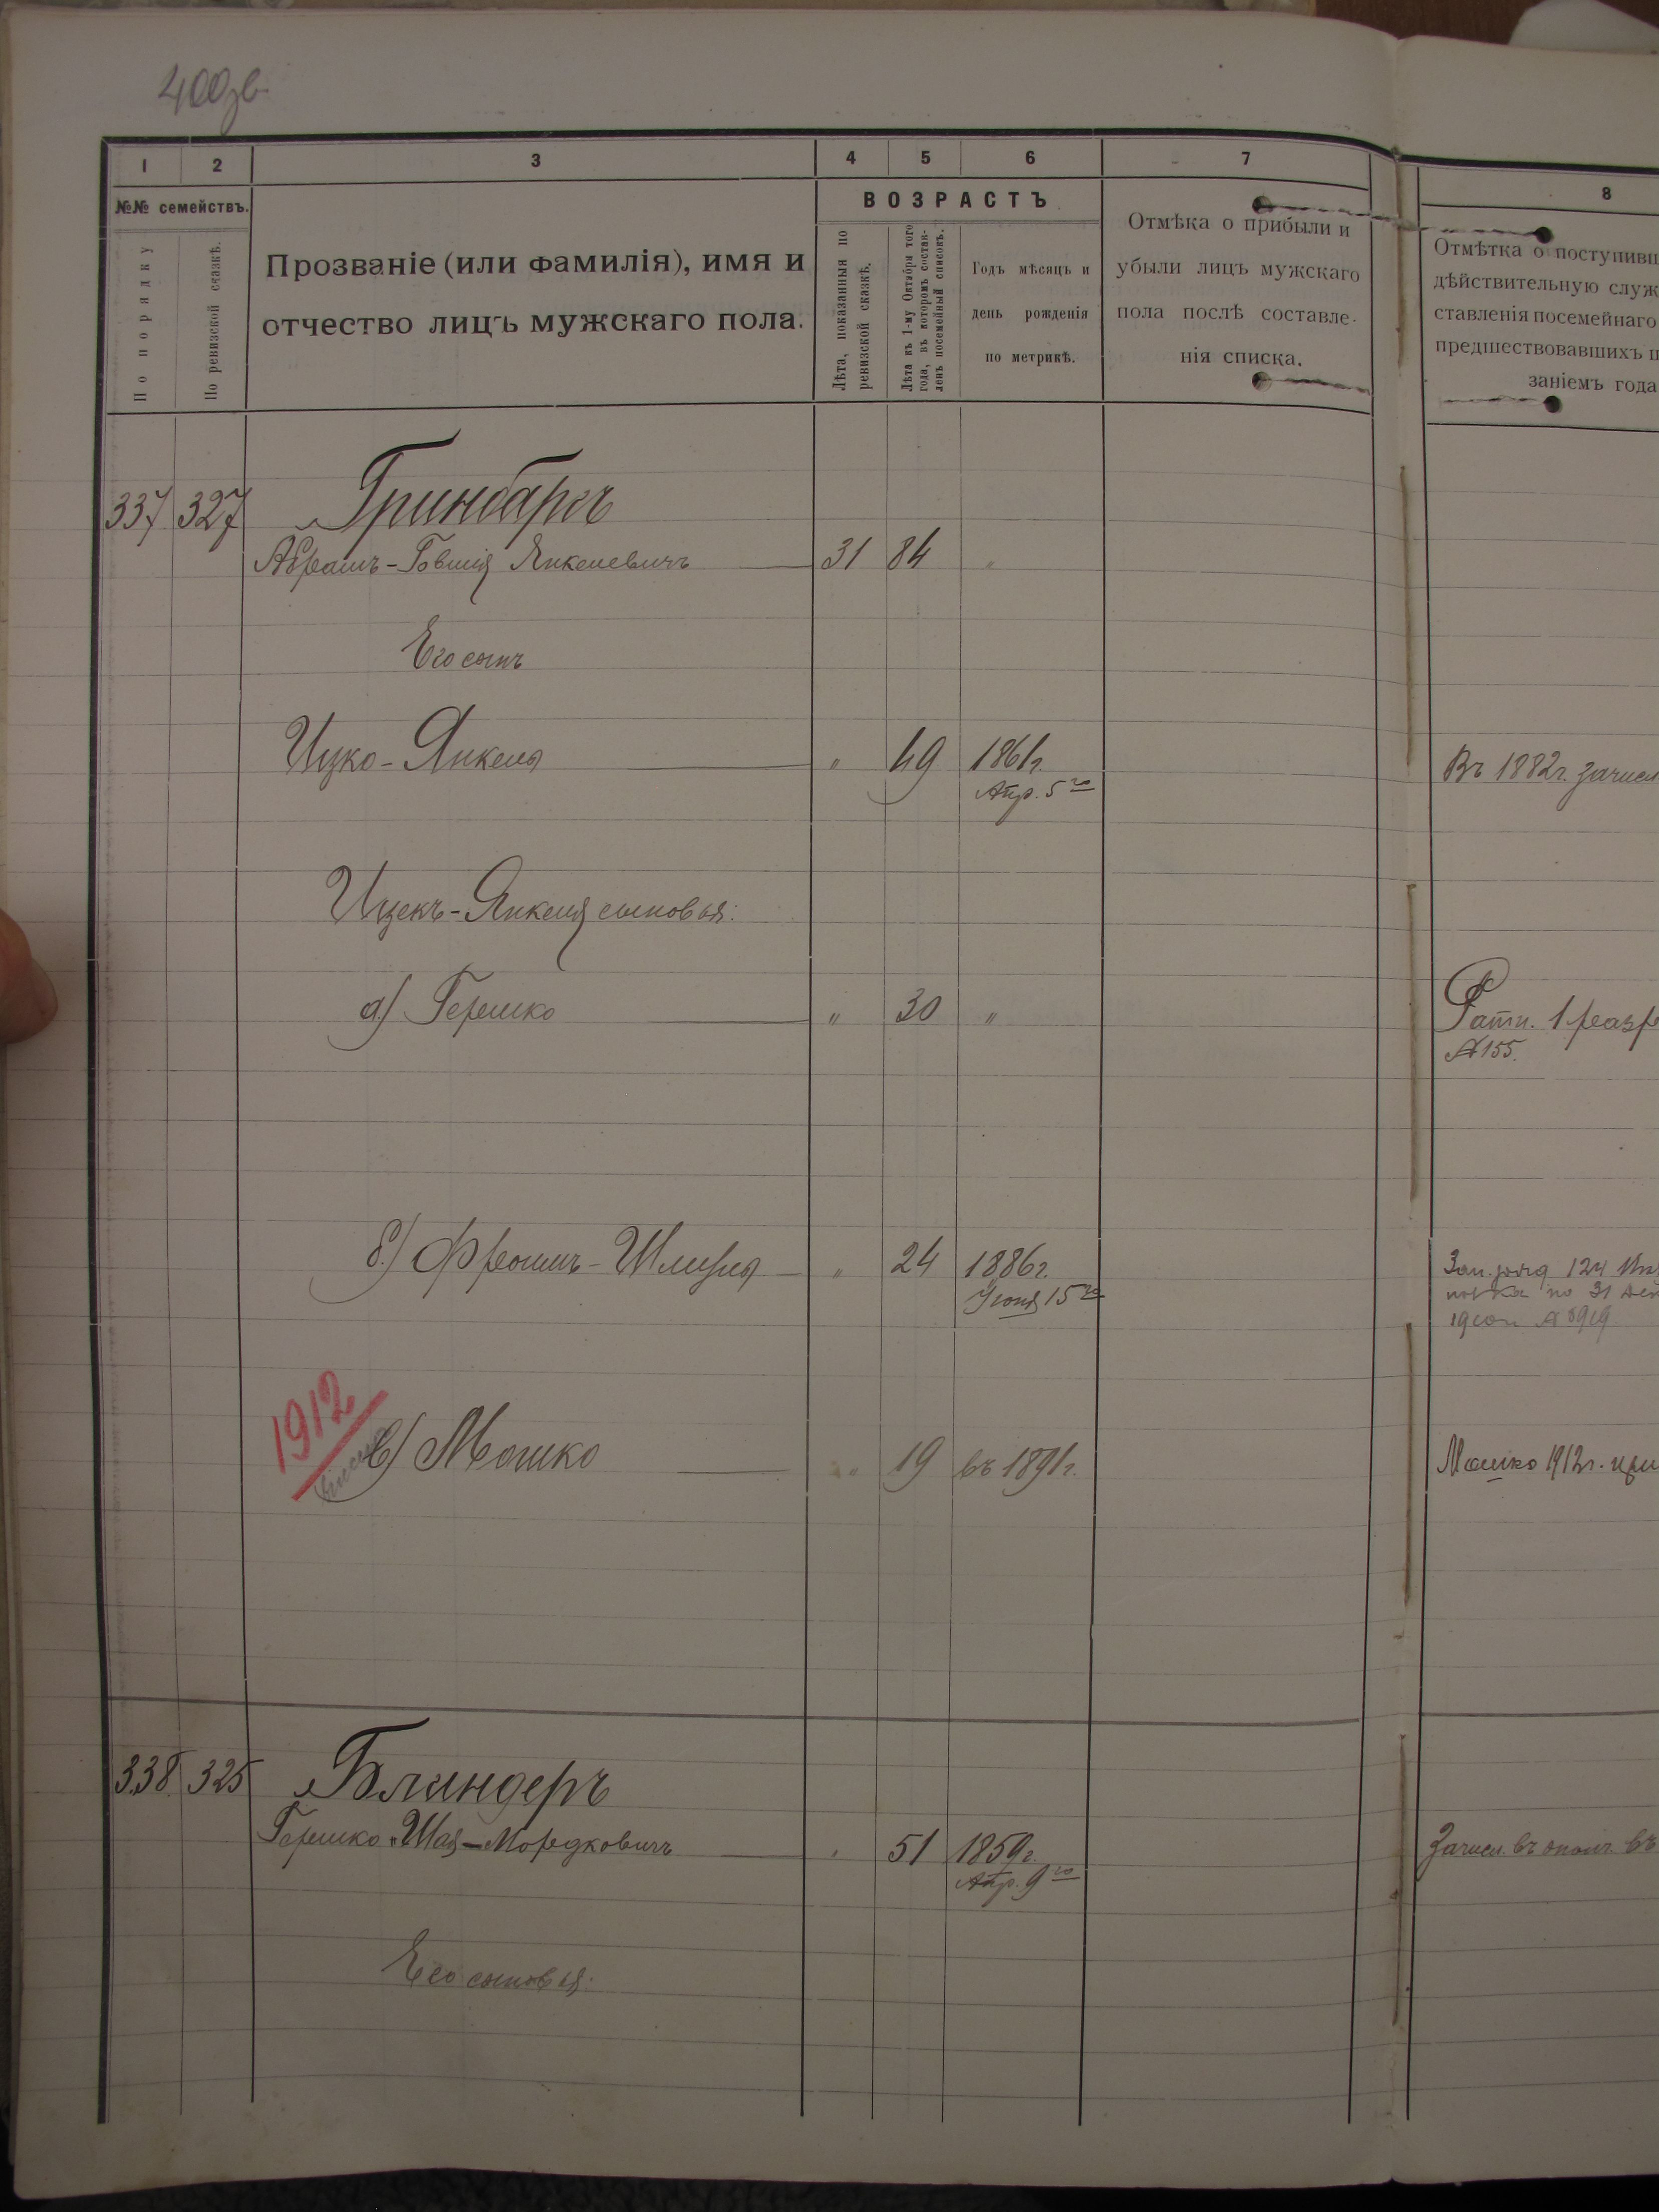 400 зв.
1 2 3 4 5 6 7 8
№№ семействъ.
По порядку
По ревизской сказкѣ.
Прозваніе (или фамилія), имя и
отчество лицъ мужскаго пола.
ВОЗРАСТЪ
Лѣта, показанныя по
ревизской сказкѣ.
Лѣта къ 1-му Октября того
года, въ которомъ состав-
ленъ посемейный списокъ.
Годъ мѣсяцъ и
день рожденія
по метрикѣ.
Отмѣка о прибыли и
убыли лицъ мужскаго
пола послѣ составле-
нія списка.
Отмѣтка о поступивш
дѣйствительную служ
ставленія посемейнаго
предшествовавшихъ п
заніемъ года
337 327 Гринбаргъ
Абрамъ-Говшія Янкелевичъ 31 84 "
Его сынъ
Ицко-Янкель " 49 1861г.
Апр. 5го
Въ 1882г. зачисл
Ицекъ-Янкеля сыновья:
а) Гершко " 30 "
Ратн. 1 разр
№155.
б) Фроимъ-Шлиома " 24 1886г.
Іюня 15го
Зап. ряд 124
полка по 31
1912
в) Мошко " 19 въ 1891г.
Мошко 1912г. при
338 325 Блиндеръ
Гершко-Шая-Мордковичъ " 51 1859г.
Апр. 9го
Зачисл. въ ополч. въ
Его сыновья: